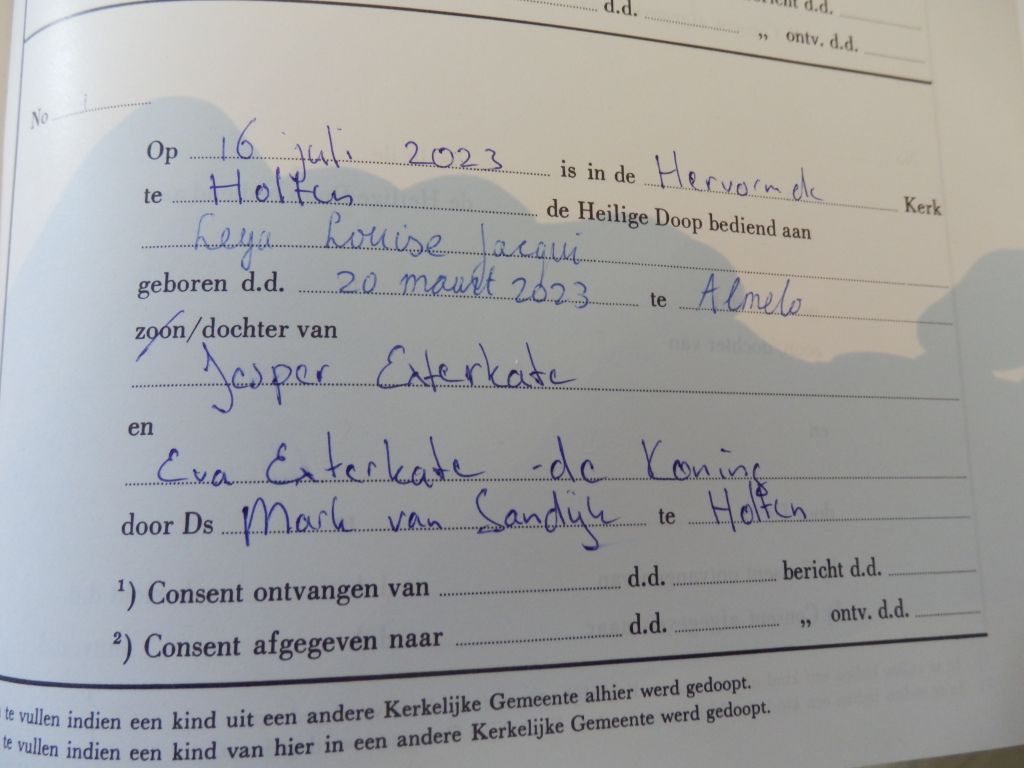 d.d. bericht d.d.
„ ontv. d.d.
No
Op 16 juli 2023 is in de Hervormde Kerk
te Holten de Heilige Doop bediend aan
Leya Louise Jacqui
geboren d.d. 20 maart 2023 te Almelo
zoon/dochter van
Jesper Exterkate
en
Eva Exterkate -de Koning
door Ds Mark van Sandijk te Holten
¹) Consent ontvangen van d.d. bericht d.d.
²) Consent afgegeven naar d.d. „ ontv. d.d.
te vullen indien een kind uit een andere Kerkelijke Gemeente alhier werd gedoopt.
te vullen indien een kind van hier in een andere Kerkelijke Gemeente werd gedoopt.